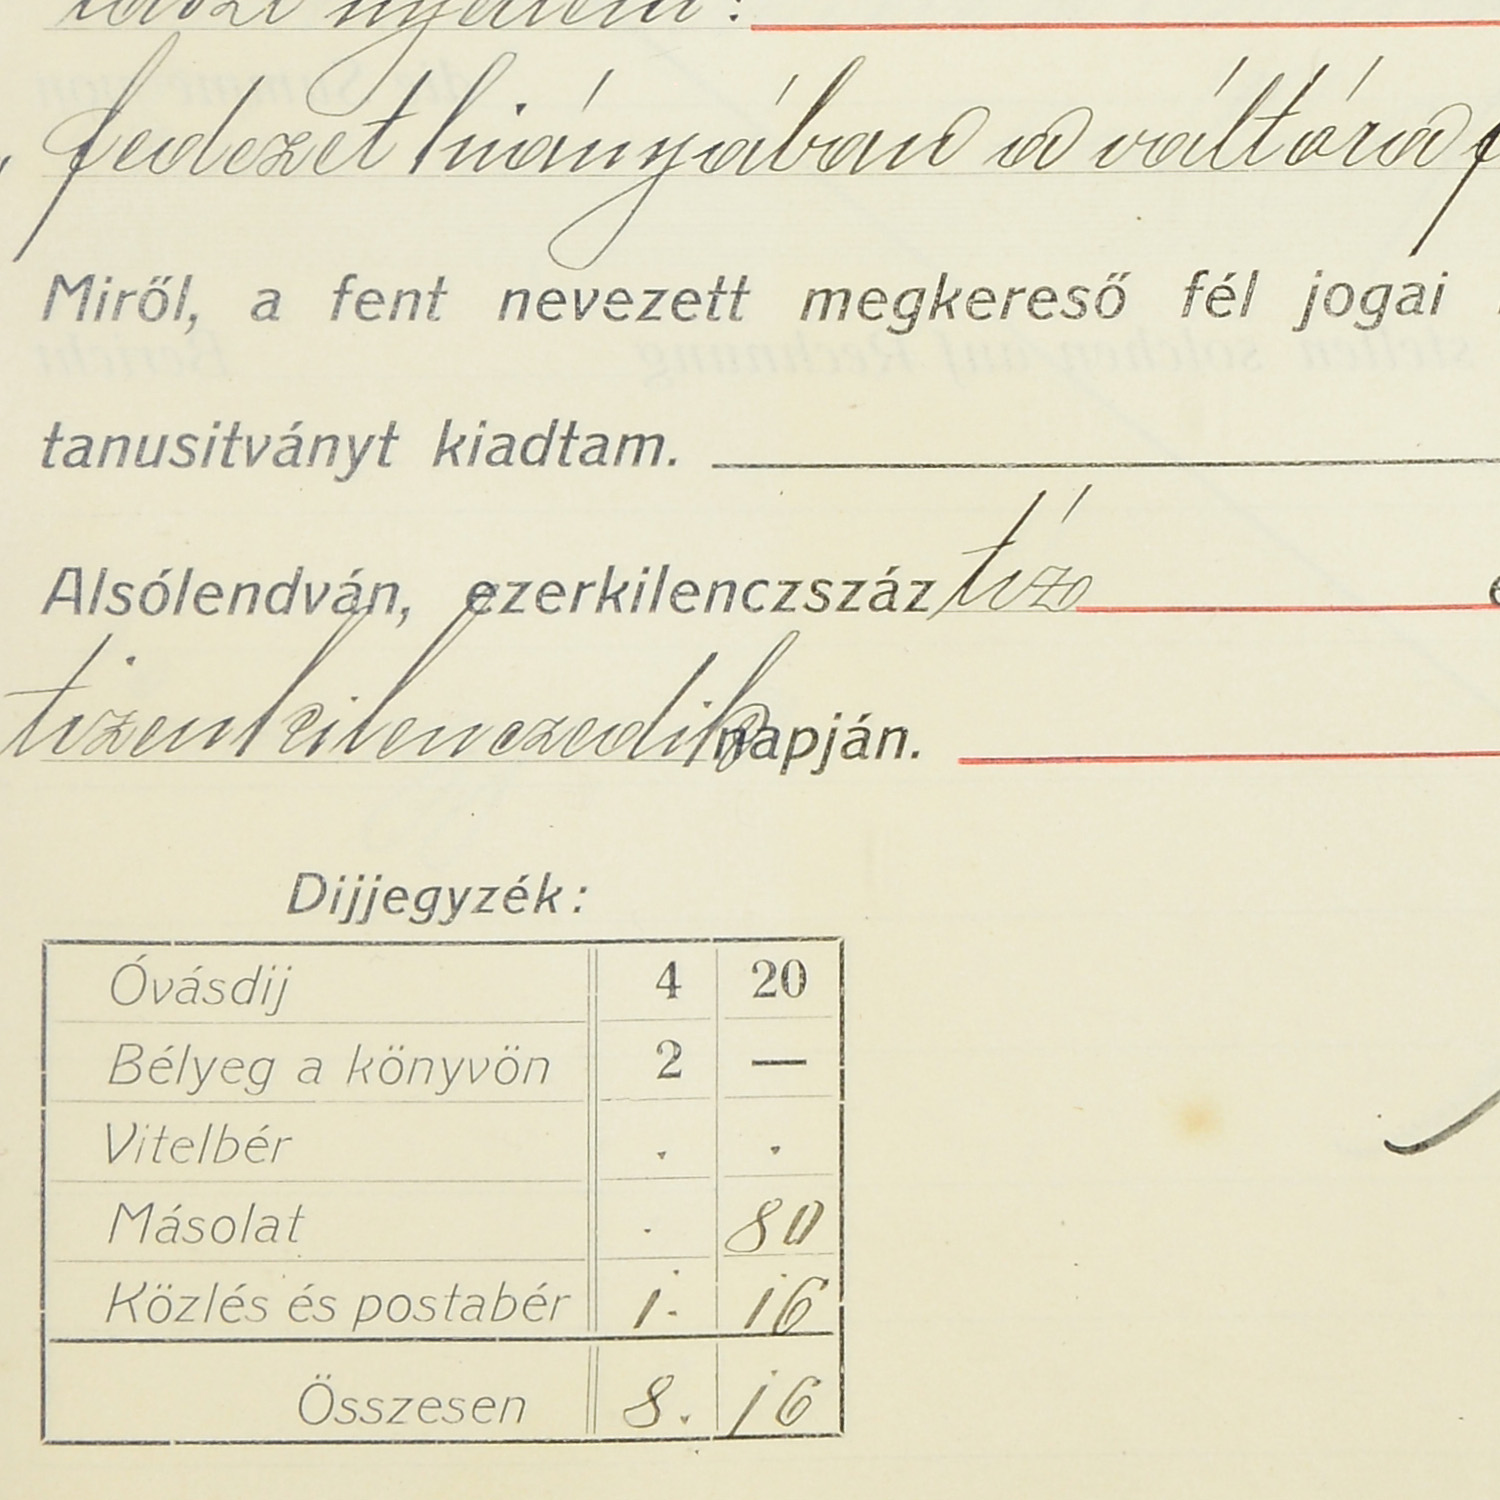 nyelven:
fedezet hiányában a váltóra
Miről, a fent nevezett megkereső fél jogai
tanusitványt kiadtam.
Alsólendván, ezerkilenczszáz tíz
tizenkilenczedik napján.
Dijjegyzék:
Óvásdij 4 20
Bélyeg a könyvön 2 —
Vitelbér . .
Másolat . 80
Közlés és postabér 1. 16
Összesen 8. 16